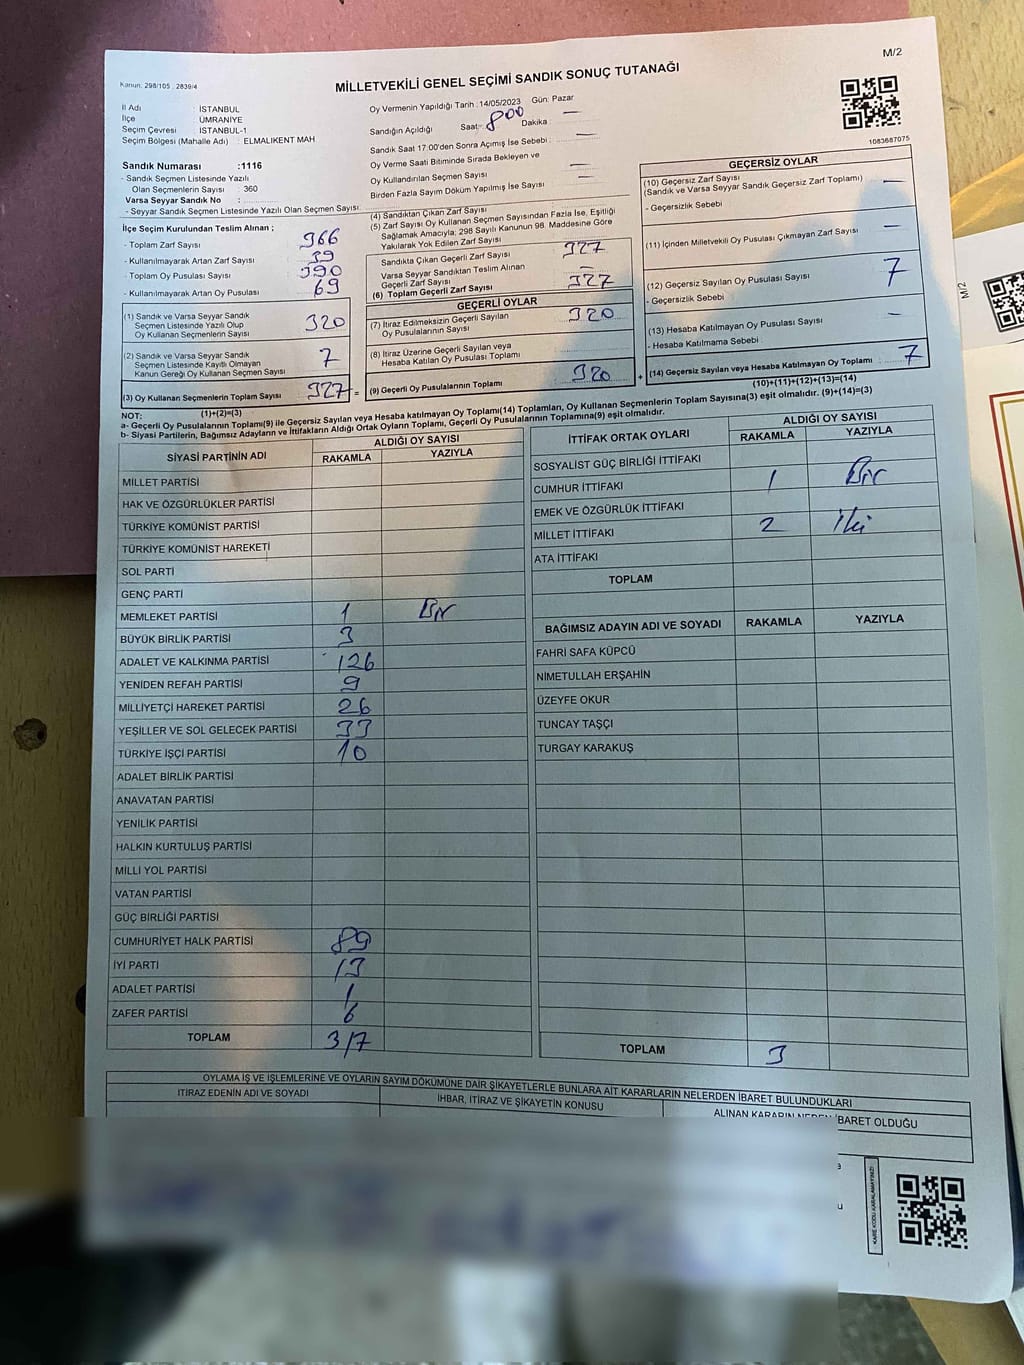 M/2
Kanun: 298/105 , 2839/4
MİLLETVEKİLİ GENEL SEÇİMİ SANDIK SONUÇ TUTANAĞI
İl Adı : İSTANBUL
İlçe : ÜMRANİYE
Seçim Çevresi : İSTANBUL-1
Seçim Bölgesi (Mahalle Adı) : ELMALIKENT MAH
Sandık Numarası :1116
- Sandık Seçmen Listesinde Yazılı
Olan Seçmenlerin Sayısı : 360
Varsa Seyyar Sandık No :
- Seyyar Sandık Seçmen Listesinde Yazılı Olan Seçmen Sayısı:
Oy Vermenin Yapıldığı Tarih : 14/05/2023 Gün: Pazar
Sandığın Açıldığı Saat: 800 Dakika : —
Sandık Saat 17:00'den Sonra Açımış İse Sebebi : —
Oy Verme Saati Bitiminde Sırada Bekleyen ve
Oy Kullandırılan Seçmen Sayısı —
Birden Fazla Sayım Döküm Yapılmış İse Sayısı —
1083687075
İlçe Seçim Kurulundan Teslim Alınan ;
- Toplam Zarf Sayısı 366
- Kullanılmayarak Artan Zarf Sayısı 39
- Toplam Oy Pusulası Sayısı 390
- Kullanılmayarak Artan Oy Pusulası 69
(1) Sandık ve Varsa Seyyar Sandık
Seçmen Listesinde Yazılı Olup
Oy Kullanan Seçmenlerin Sayısı 320
(2) Sandık ve Varsa Seyyar Sandık
Seçmen Listesinde Kayıtlı Olmayan
Kanun Gereği Oy Kullanan Seçmen Sayısı 7
(3) Oy Kullanan Seçmenlerin Toplam Sayısı 327 =
(1)+(2)=(3)
(4) Sandıktan Çıkan Zarf Sayısı
(5) Zarf Sayısı Oy Kullanan Seçmen Sayısından Fazla İse, Eşitliği
Sağlamak Amacıyla; 298 Sayılı Kanunun 98. Maddesine Göre
Yakılarak Yok Edilen Zarf Sayısı
Sandıkta Çıkan Geçerli Zarf Sayısı 327
Varsa Seyyar Sandıktan Teslim Alınan
Geçerli Zarf Sayısı —
(6) Toplam Geçerli Zarf Sayısı 327
GEÇERLİ OYLAR
(7) İtiraz Edilmeksizin Geçerli Sayılan
Oy Pusulalarının Sayısı 320
(8) İtiraz Üzerine Geçerli Sayılan veya
Hesaba Katılan Oy Pusulası Toplamı
(9) Geçerli Oy Pusulalarının Toplamı 320 +
GEÇERSİZ OYLAR
(10) Geçersiz Zarf Sayısı
(Sandık ve Varsa Seyyar Sandık Geçersiz Zarf Toplamı) —
- Geçersizlik Sebebi
(11) İçinden Milletvekili Oy Pusulası Çıkmayan Zarf Sayısı —
(12) Geçersiz Sayılan Oy Pusulası Sayısı 7
- Geçersizlik Sebebi
(13) Hesaba Katılmayan Oy Pusulası Sayısı —
- Hesaba Katılmama Sebebi
(14) Geçersiz Sayılan veya Hesaba Katılmayan Oy Toplamı 7
(10)+(11)+(12)+(13)=(14)
NOT:
a- Geçerli Oy Pusulalarının Toplamı(9) ile Geçersiz Sayılan veya Hesaba katılmayan Oy Toplamı(14) Toplamları, Oy Kullanan Seçmenlerin Toplam Sayısına(3) eşit olmalıdır. (9)+(14)=(3)
b- Siyasi Partilerin, Bağımsız Adayların ve İttifakların Aldığı Ortak Oyların Toplamı, Geçerli Oy Pusulalarının Toplamına(9) eşit olmalıdır.
SİYASİ PARTİNİN ADI ALDIĞI OY SAYISI
RAKAMLA YAZIYLA
MİLLET PARTİSİ
HAK VE ÖZGÜRLÜKLER PARTİSİ
TÜRKİYE KOMÜNİST PARTİSİ
TÜRKİYE KOMÜNİST HAREKETİ
SOL PARTİ
GENÇ PARTİ
MEMLEKET PARTİSİ 1 Bir
BÜYÜK BİRLİK PARTİSİ 3
ADALET VE KALKINMA PARTİSİ 126
YENİDEN REFAH PARTİSİ 9
MİLLİYETÇİ HAREKET PARTİSİ 26
YEŞİLLER VE SOL GELECEK PARTİSİ 33
TÜRKİYE İŞÇİ PARTİSİ 10
ADALET BİRLİK PARTİSİ
ANAVATAN PARTİSİ
YENİLİK PARTİSİ
HALKIN KURTULUŞ PARTİSİ
MİLLİ YOL PARTİSİ
VATAN PARTİSİ
GÜÇ BİRLİĞİ PARTİSİ
CUMHURİYET HALK PARTİSİ 89
İYİ PARTİ 13
ADALET PARTİSİ 1
ZAFER PARTİSİ 6
TOPLAM 317
İTTİFAK ORTAK OYLARI ALDIĞI OY SAYISI
RAKAMLA YAZIYLA
SOSYALİST GÜÇ BİRLİĞİ İTTİFAKI
CUMHUR İTTİFAKI 1 Bir
EMEK VE ÖZGÜRLÜK İTTİFAKI
MİLLET İTTİFAKI 2 iki
ATA İTTİFAKI
TOPLAM
BAĞIMSIZ ADAYIN ADI VE SOYADI RAKAMLA YAZIYLA
FAHRİ SAFA KÜPCÜ
NİMETULLAH ERŞAHİN
ÜZEYFE OKUR
TUNCAY TAŞÇI
TURGAY KARAKUŞ
TOPLAM 3
OYLAMA İŞ VE İŞLEMLERİNE VE OYLARIN SAYIM DÖKÜMÜNE DAİR ŞİKAYETLERLE BUNLARA AİT KARARLARIN NELERDEN İBARET BULUNDUKLARI
İTİRAZ EDENİN ADI VE SOYADI İHBAR, İTİRAZ VE ŞİKAYETİN KONUSU ALINAN KARARIN NEDEN İBARET OLDUĞU
KARE KODU KARALAMAYINIZ!
M/2